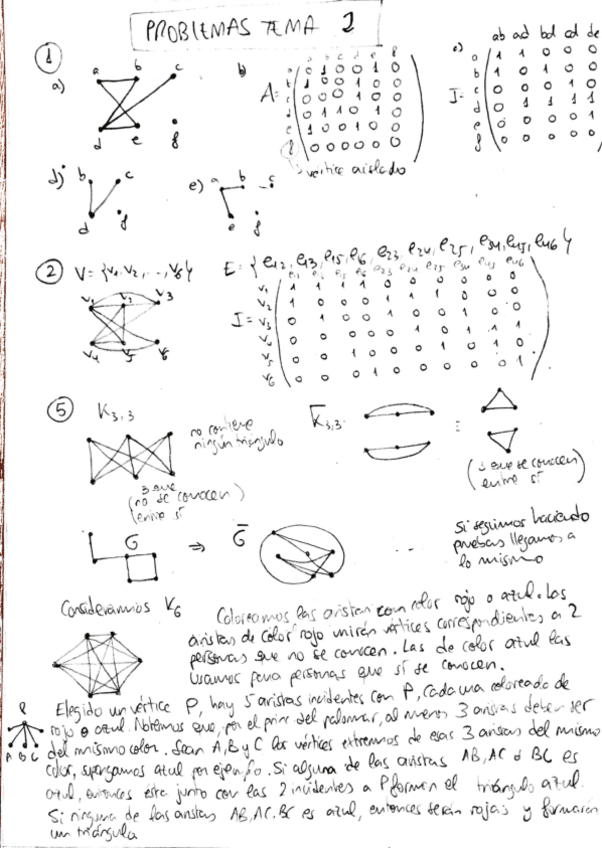 PROBLEMAS TEMA 1
①
a)
a b c
d e f
b
A =
a b c d e f
0 1 0 0 1 0
0 0 0 0 0 0
vértice aislado
c)
I =
ab ad bd cd de
a 1 1 0 0 0
b 1 0 1 0 0
c 0 0 0 1 0
d 0 1 1 1 1
e 0 0 0 0 1
f 0 0 0 0 0
d)
b c
d f
e)
a b c
e f
② V = {v1, v2, ..., v6}
E = {e12, e13, e15, e16, e23, e24, e25, e34, e45, e46}
v1 v2 v3
v4 v5 v6
I =
v1
v2
v3
v4
v5
v6
⑤ K3,3
no contiene
ningún triángulo
K3,3
(3 que
no se conocen
entre sí)
(3 que se conocen
entre sí)
G ⇒ G
...
Si seguimos haciendo
pruebas llegamos a
lo mismo
Consideramos K6
Coloreamos las aristas con color rojo o azul. Las
aristas de color rojo unirán vértices correspondientes a 2
personas que no se conocen. Las de color azul las
usamos para personas que sí se conocen.
Elegido un vértice P, hay 5 aristas incidentes con P, cada una coloreado de
rojo o azul. Notemos que, por el prin del palomar, al menos 3 aristas deben ser
del mismo color. Sean A, B y C los vértices extremos de esas 3 aristas del mismo
color, supongamos azul por ejemplo. Si alguna de las aristas AB, AC ó BC es
azul, entonces esta junto con las 2 incidentes a P forman el triángulo azul.
Si ninguna de las aristas AB, AC, BC es azul, entonces serán rojas y formarán
un triángulo
P
A B C